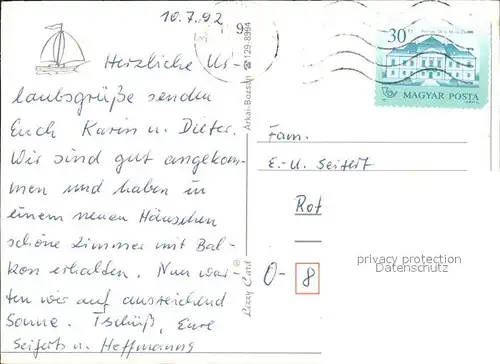 10.7.92
Herzliche Ur-
laubsgrüße senden
Euch Karin u. Dieter.
Wir sind gut angekom-
men und haben in
einem neuen Häuschen
schöne Zimmer mit Bal-
kon erhalten. Nun war-
ten wir auf ausreichend
Sonne. Tschüß, Eure
Seiferts u. Heffmanns
Arkai-Bozsán ☎ 129-8994
Lizzy Card ®
30 Ft
MAGYAR POSTA
Fam.
E.-U. Seifert
Rot
O- 8
privacy protection
Datenschutz